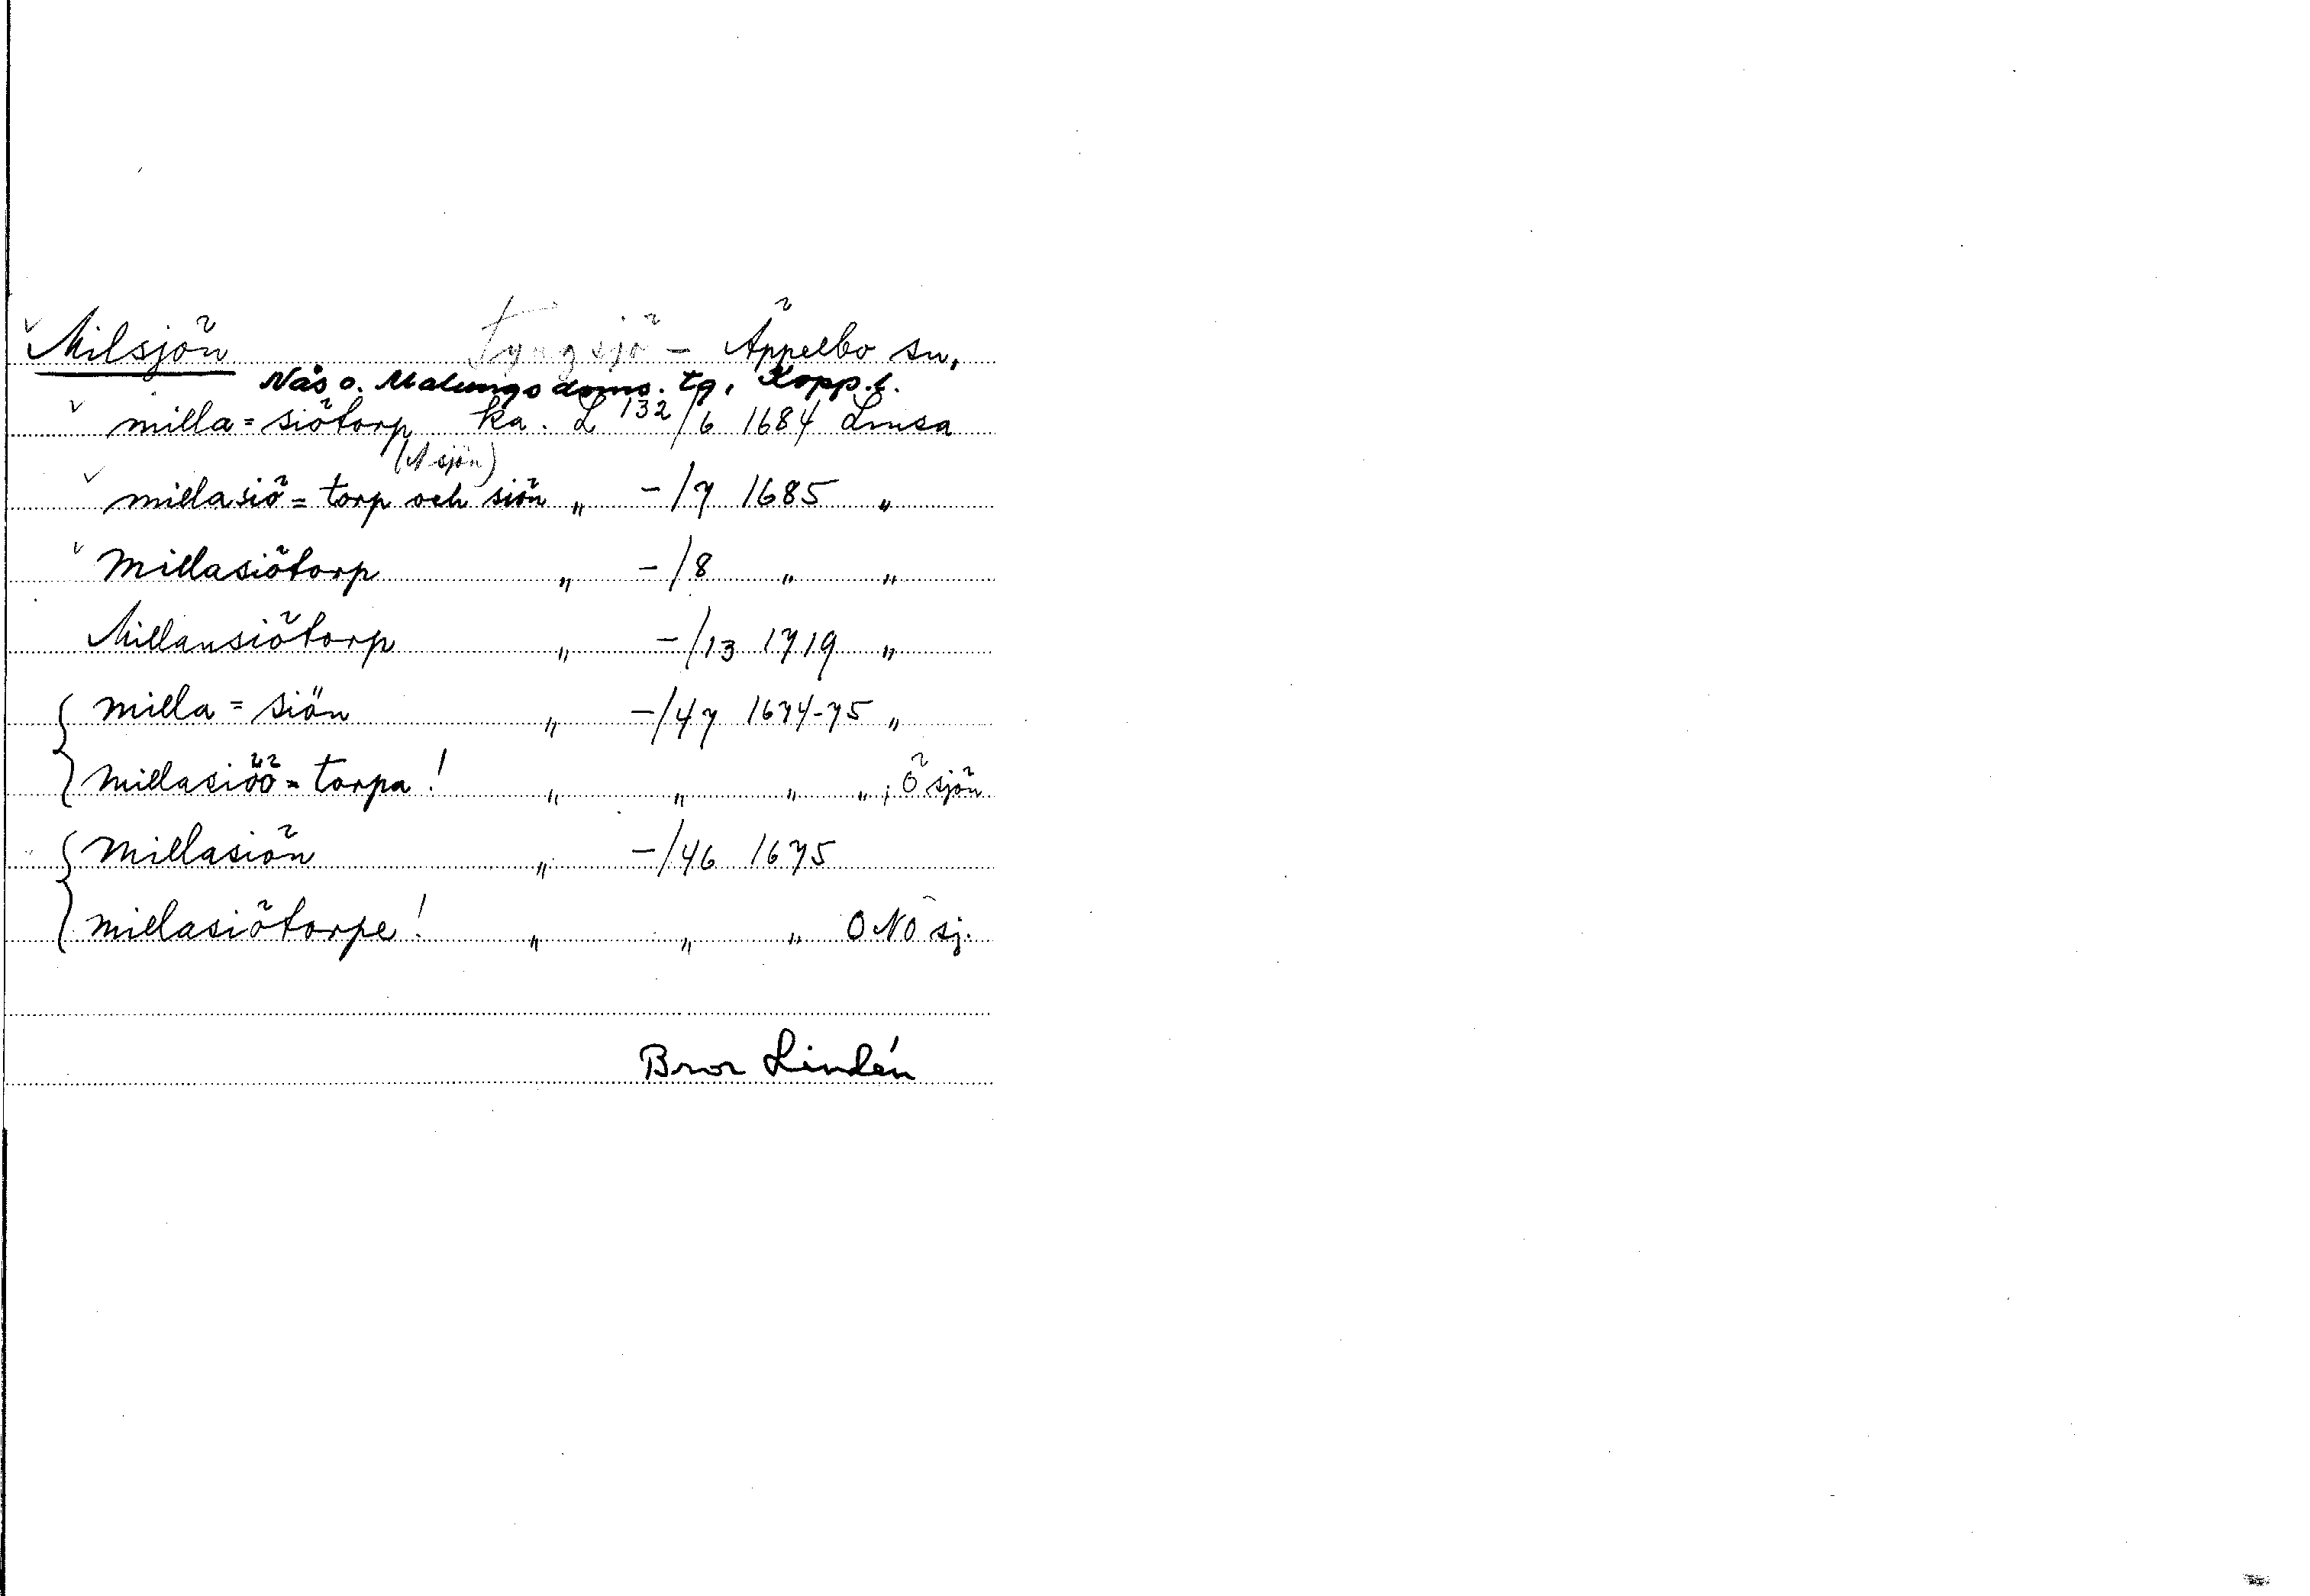 Milsjön Tyngsjö - Äppelbo sn,
Nås o. Malungs doms. tg. Kopp. l.
milla = siötorp ka. L 132/6 1684 Lmsa
(N sjön)
millasiö = torp och siön „ -/7 1685 „
Millasiötorp „ -/8 „ „
Millansiötorp „ -/13 1719 „
milla = siön „ -/47 1674-75 „
Millasiöö = torpa! „ „ „ „; Ö sjön
Millasiön „ -/46 1675
millasiötorpe! „ „ „ ONO sj.
Bror Lindén